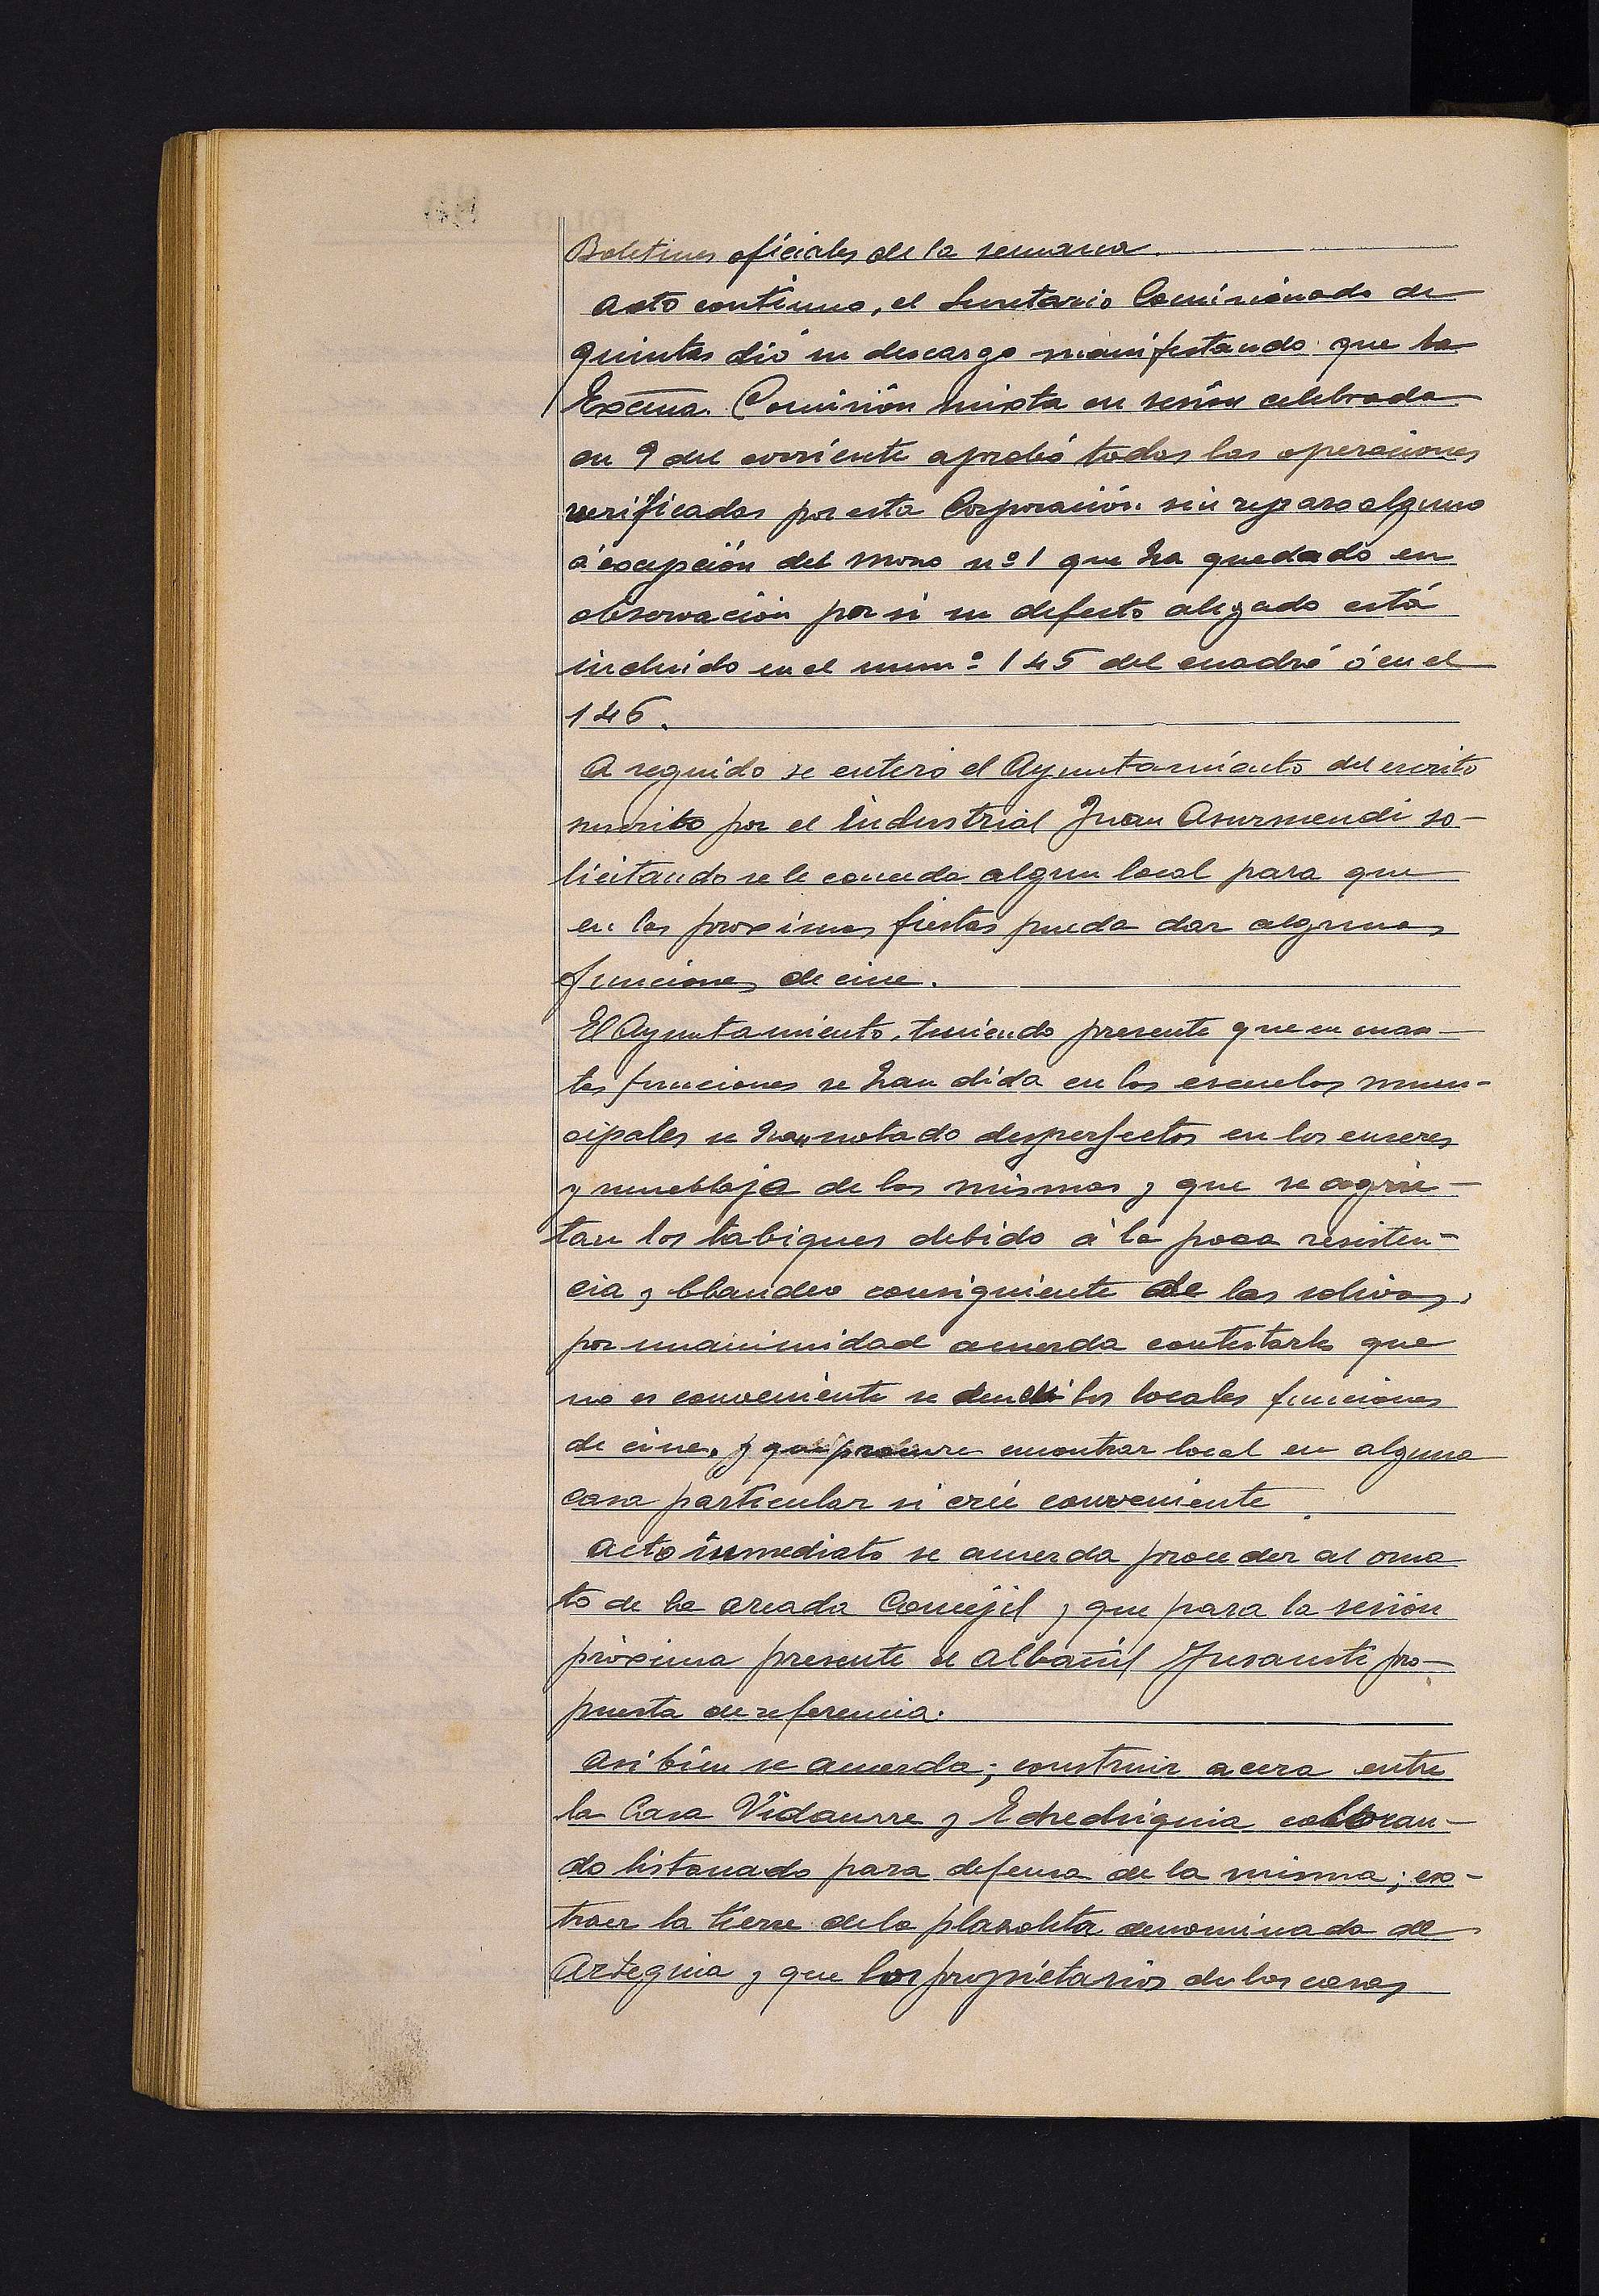 Boletines oficiales de la semana.
Acto continuo, el Secretario Comisionado de
quintas dió su descargo manifestando que la
Excma. Comisión mixta en sesión celebrada
en 9 del corriente aprobó todas las operaciones
verificadas por esta Corporación sin reparo alguno
á excepción del mozo nº 1 que ha quedado en
observación por si su defecto alegado está
incluido en el numº 145 del cuadro ó en el
146.
A seguido se enteró el Ayuntamiento del escrito
suscrito por el industrial Juan Asurmendi so-
licitando se le conceda algun local para que
en las proximas fiestas pueda dar algunas
funciones de cine.
El Ayuntamiento, teniendo presente que en cuan-
tas funciones se han dida en las escuelas muni-
cipales se han notado desperfectos en los enseres
y mueblaje de las mismas y que se agrie-
tan los tabiques debido á la poca resisten-
cia y blandeo consiguiente de las solivas,
por unanimidad acuerda contestarle que
no es conveniente se den en los locales funciones
de cine, y que procure encontrar local en alguna
casa particular si crée conveniente.
Acto inmediato se acuerda proceder al orna
to de la arcada Concejil y que para la sesión
próxima presente el albañil Yusauste pro-
puesta de referencia.
Asi bien se acuerda; construir acera entre
la Casa Vidaurre y Echediquia colocan-
do listonado para defensa de la misma; ex-
traer la tierra de la plazoleta denominada de
Arteguia y que los propietarios de las casas